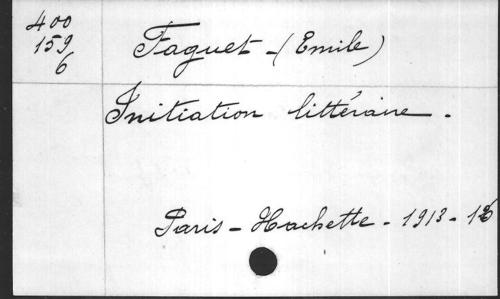 400
159
6
Faguet - (Emile)
Initiation littéraire.
Paris - Hachette - 1913 - 16